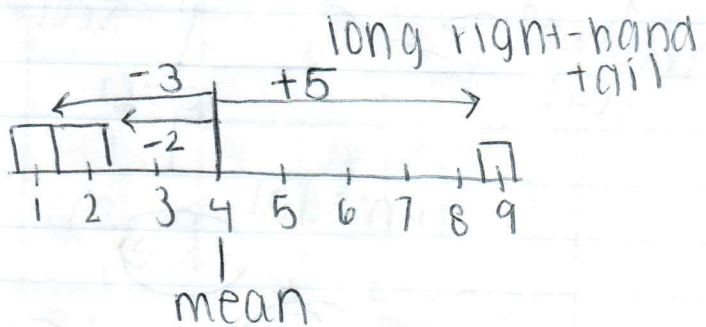 long right-hand
tail
-3 +5
-2
1 2 3 4 5 6 7 8 9
mean